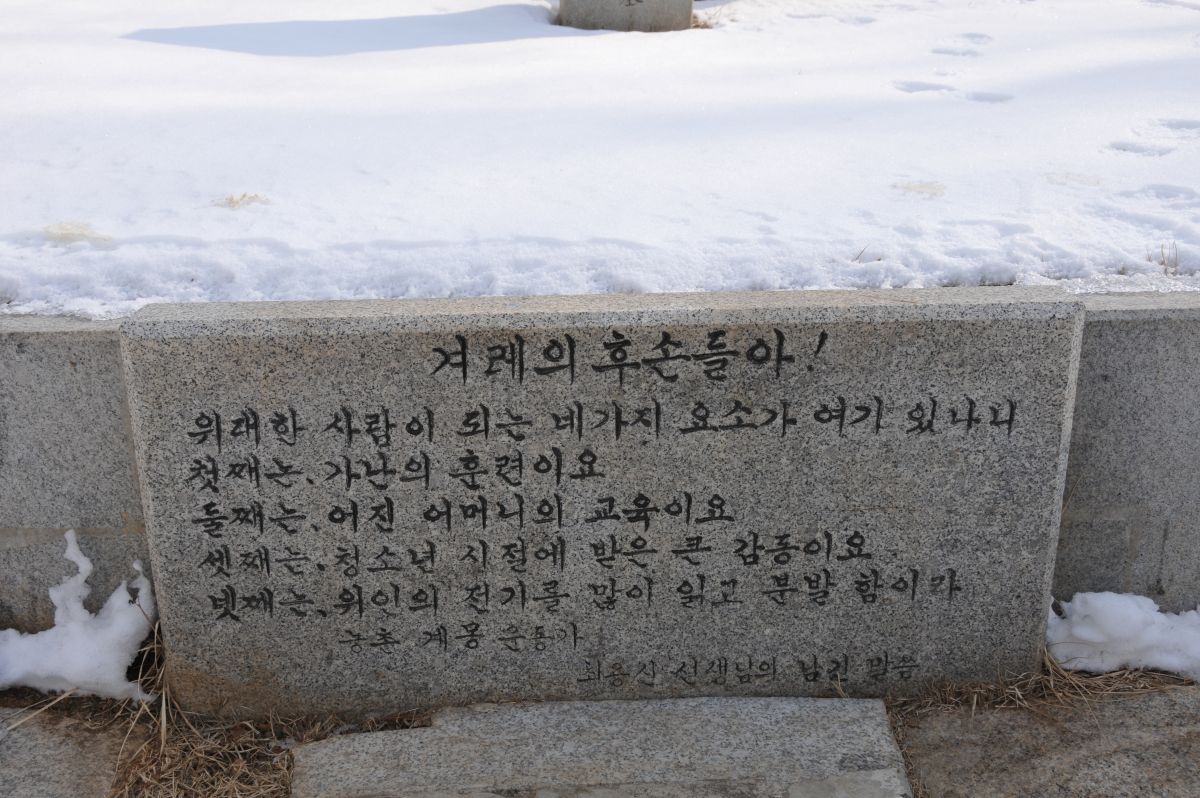 겨레의 후손들아!
위대한 사람이 되는 네가지 요소가 여기 있나니
첫째는, 가난의 훈련이요
둘째는, 어진 어머니의 교육이요
셋째는, 청소년 시절에 받은 큰 감동이요
넷째는, 위인의 전기를 많이 읽고 분발 함이라
농촌 계몽 운동가
최용신 선생님의 남긴 말씀